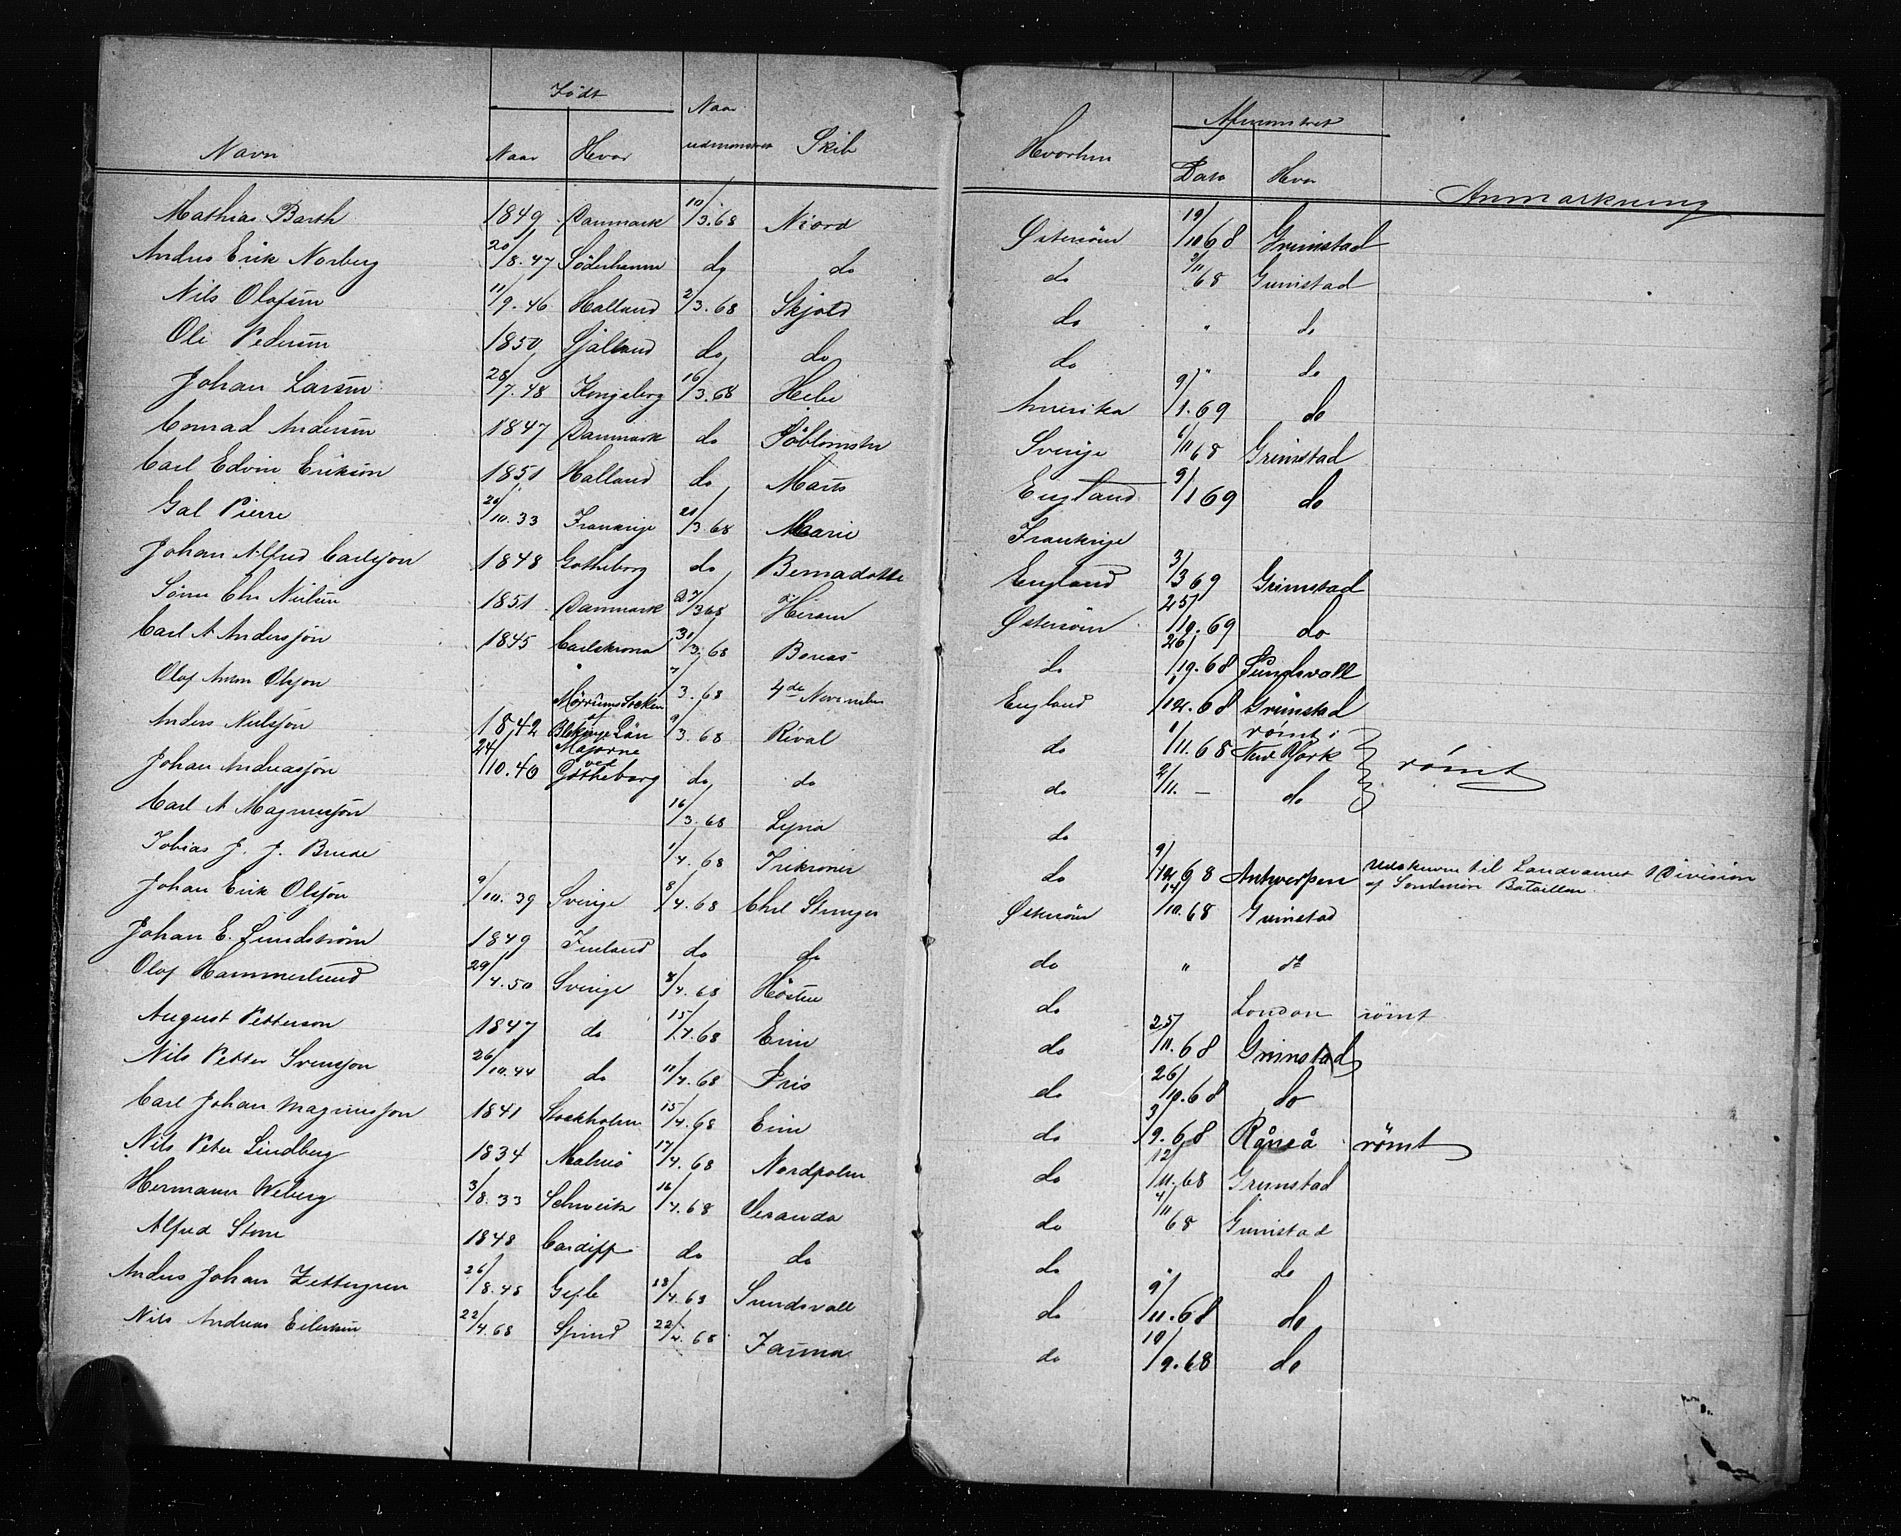 Navn Født Naar Hvor Naar udmønstret Skib Hvorhen Afmønstret Dato Hvor Anmærkning
Mathias Barth 1849 Danmark 10/3.68 Niord Østersöen 19/10 68 Grimstad
Andres Erik Norberg 20/8.47 Söderhamn do do do 3/11 68 Grimstad
Nils Olafsen 11/9.46 Halland 2/3.68 Skjold do " do
Ole Pedersen 1850 Sjælland do do do " do
Johan Larsen 28/7.48 Kongsberg 16/3.68 Hebe Amerika 9/1.69 do
Conrad Andersen 1847 Danmark do Søblomsten Sverige 6/11 68 Grimstad
Carl Edvin Erikson 1851 Halland do Mars England 9/1 69 do
Gal Pierre 20/10.33 Frankrige 21/3.68 Marie Frankrige
Johan Alfred Carlsson 1848 Gotheborg do Bernadotte England 3/3 69 Grimstad
Sören Chr Nielsen 1851 Danmark 27/3 68 Hiram Østersöen 25/10.69 do
Carl A Andersson 1845 Carlskrona 31/3.68 Boreas do 26/9.68 Sundsvall
Olof Olsson 7/3.68 4de November England /12.68 Grimstad
Anders Nielsson 1842 Mørrums Socken af Blekinge Län 9/3.68 Rival do 1/11.68 rømt i New York rømt
Johan Andreasson 24/10.40 Majorne ved Götheborg do do do 2/11. — do
Carl A Magnusson 16/3.68 Lyna do
Tobias J. J. Brude 1/4.68 Trekroner do 9/12 68 Antwerpen Udskreven til Landværnet Division
af Bataillon
Johan Erik Olsson 9/10.39 Sverige 8/4.68 Chr Østersöen 14/10.68 Grimstad
Johan E. Lundström 1849 Finland do do do " do
Olof Hammerlund 29/4.50 Sverige 8/4.68 Hösten do London rømt
August Petterson 1847 do 15/4.68 Eine do 25/11.68 Grimstad
Nils Petter Svensson 26/10.44 do 11/4.68 Iris do 26/10.68 do
Carl Johan Magnusson 1841 Stockholm 15/4.68 Eine do 3/9.68 Råneå rømt
Nils Peter Lindberg 1834 Malmö 17/4.68 Nordpolen do 12/11.68 Grimstad
Hermann Weberg 3/8.33 16/4.68 Veranda do 4/11 68 Grimstad
Alfred Stone 1848 Cardiff do do do " do
Andres Johan Zettergren 26/8.48 Gefle 18/4.68 Sundsvall do 9/11.68 do
Nils Andreas Eilertsen 22/4.68 Spind 22/4.68 Fauna do 10/9.68 do